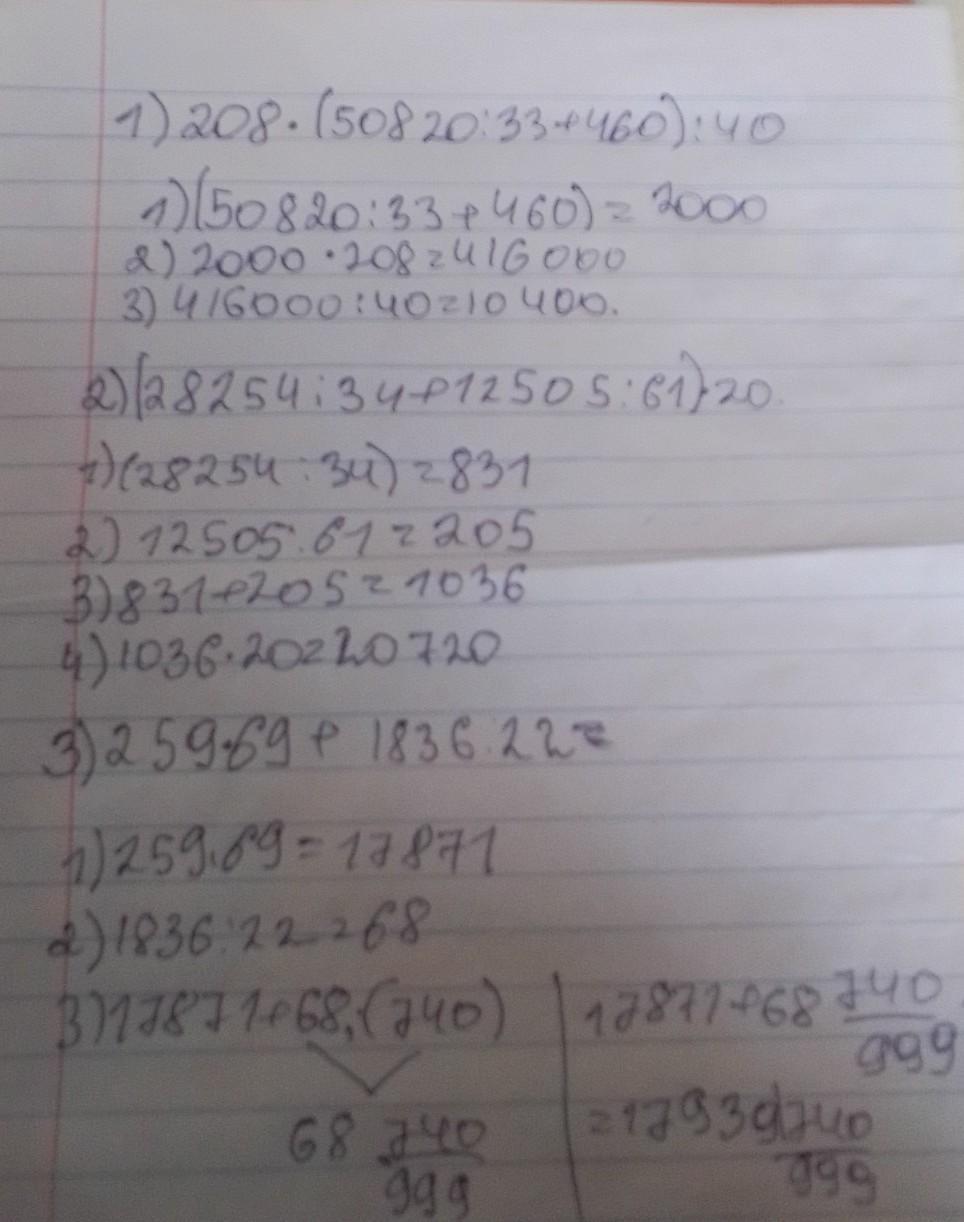 1) 208·(50820:33+460):40
1)(50820:33+460)=2000
2) 2000·208=416000
3) 416000:40=10400.
2)(28254:34+12505:61)·20.
1)(28254:34)=831
2) 12505:61=205
3) 831+205=1036
4) 1036·20=20720
3) 259·69+1836:22=
1) 259·69=17871
2) 1836:22=68
3) 17871+68,(740)
68 740/999
17871+68 740/999
=17939 740/999